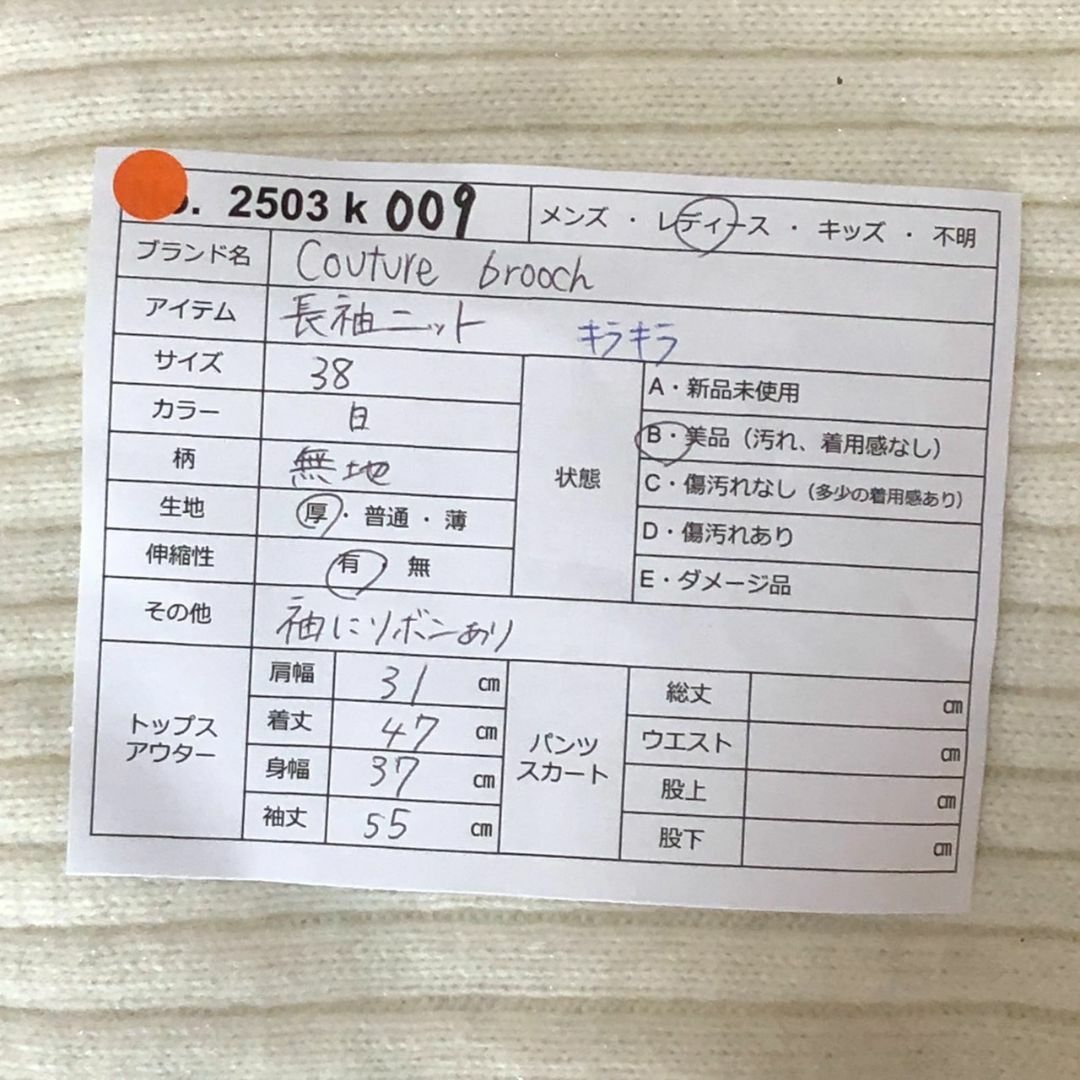 . 2503 k 009 メンズ ・ レディース ・ キッズ ・ 不明
ブランド名 Couture brooch
アイテム 長袖ニット キラキラ
サイズ 38
カラー 白
柄 無地
生地 厚 ・ 普通 ・ 薄
伸縮性 有 ・ 無
状態
A・新品未使用
B・美品（汚れ、着用感なし）
C・傷汚れなし（多少の着用感あり）
D・傷汚れあり
E・ダメージ品
その他 袖にリボンあり
トップス
アウター
肩幅 31 ㎝
着丈 47 ㎝
身幅 37 ㎝
袖丈 55 ㎝
パンツ
スカート
総丈 ㎝
ウエスト ㎝
股上 ㎝
股下 ㎝